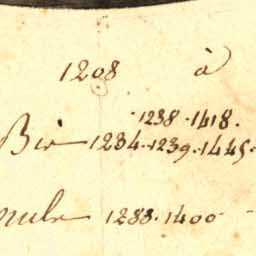 1208 à
1238.1418.
1234.1239.1445.
1283.1400